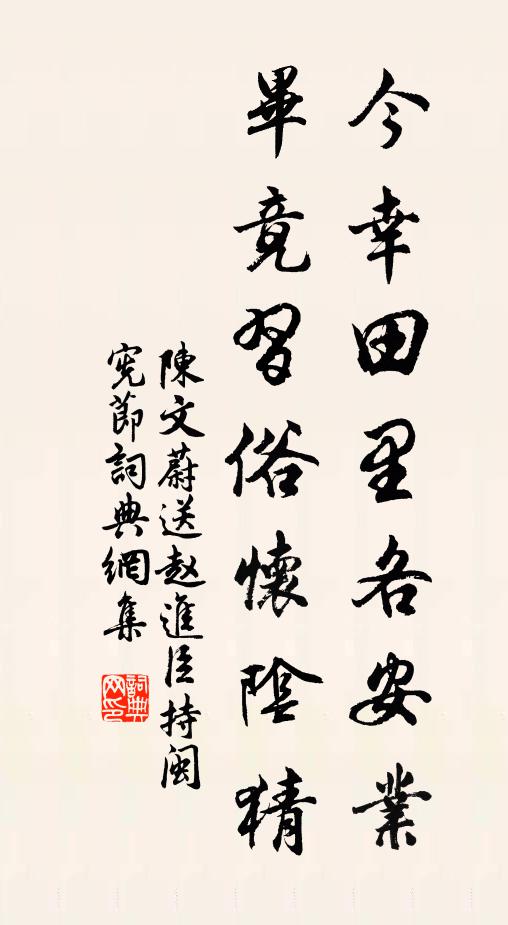 今幸田里各安業
畢竟習俗懷陰猜
陳文蔚送赵進臣持閩
宪節詞典網集
詞典
网印